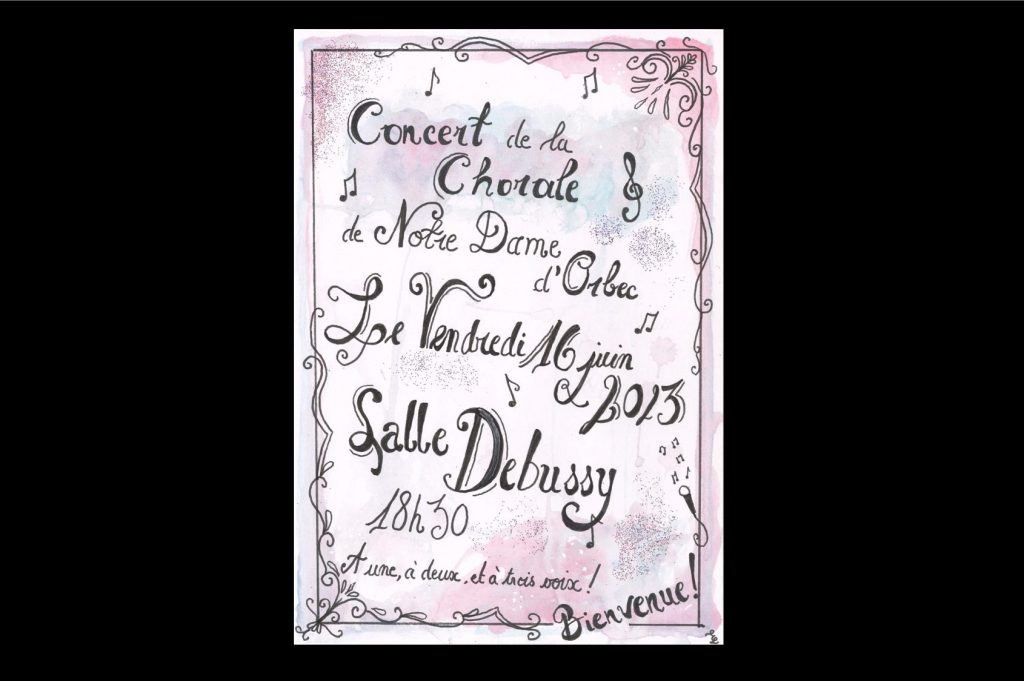 Concert de la
Chorale
de Notre Dame
d'Orbec
Le Vendredi 16 juin
2013
Salle
Debussy
18h30
A une, à deux, et à trois voix !
Bienvenue !